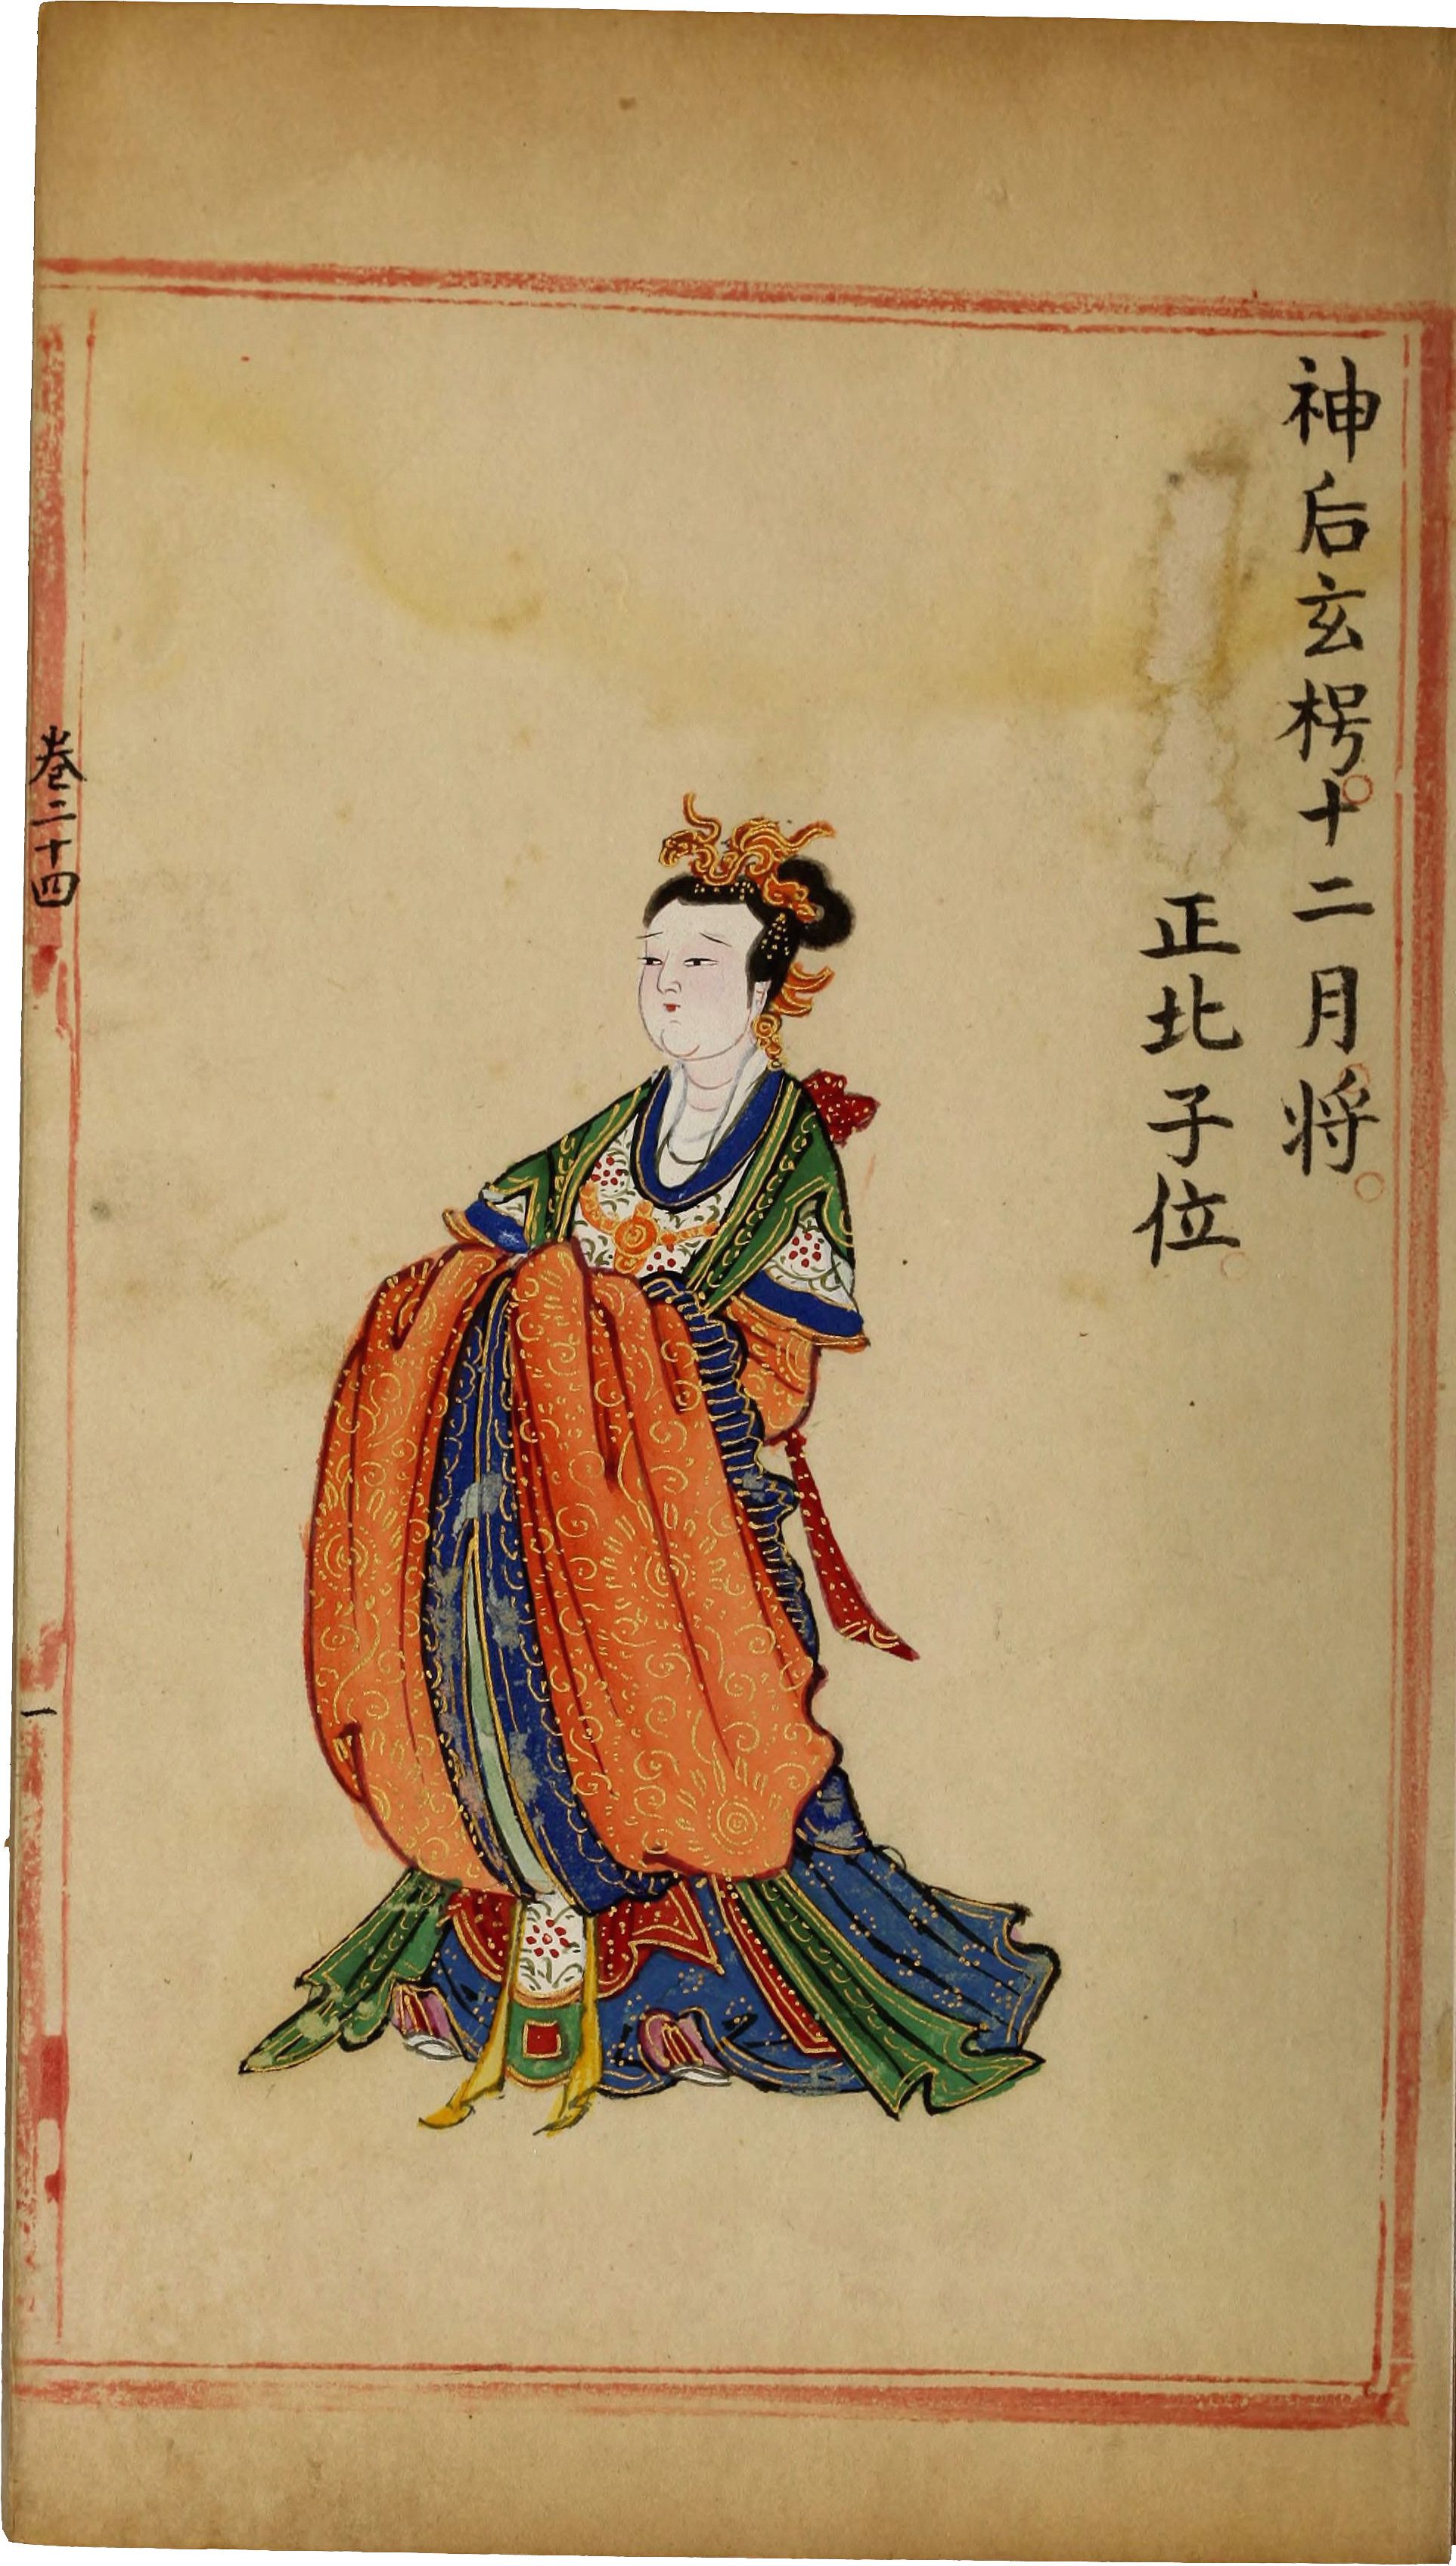 神后玄枵十二月将
正北子位
卷二十四
一